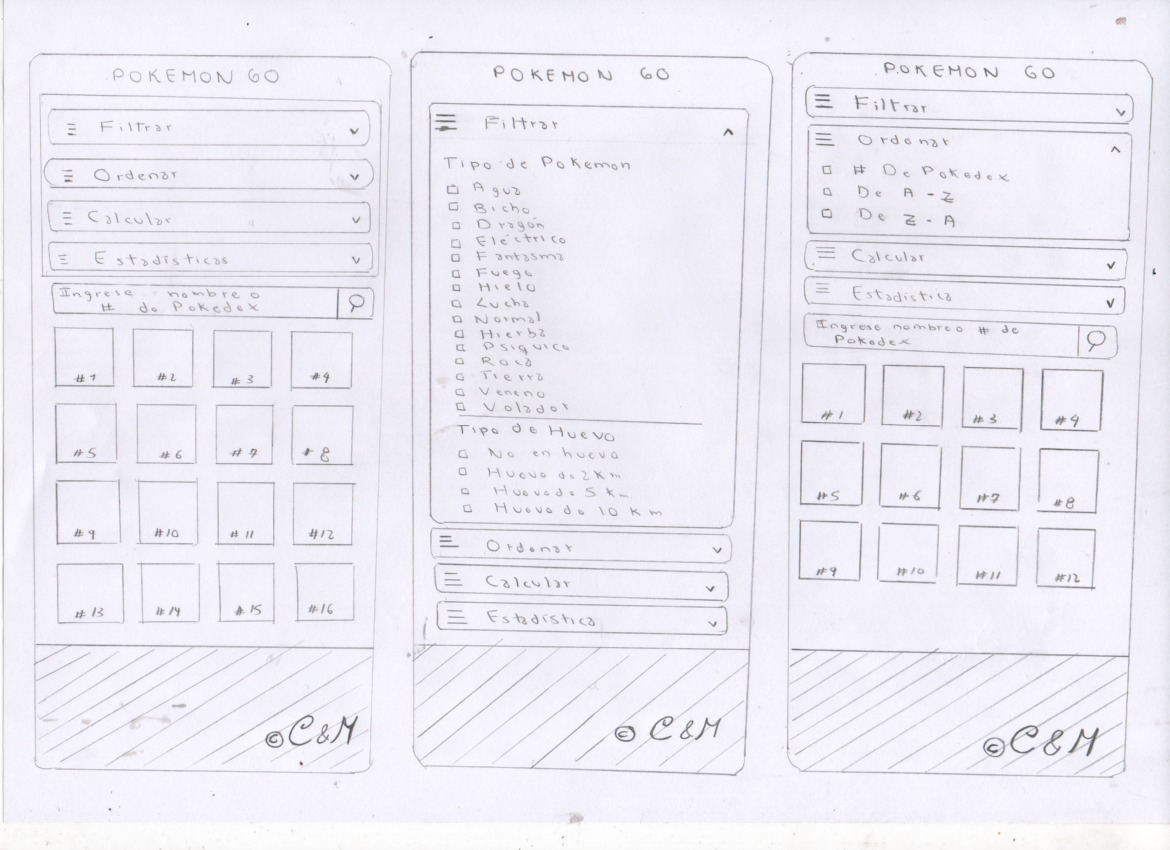 POKEMON GO
Filtrar
Ordenar
Calcular
Estadísticas
Ingrese nombre o
# de Pokedex
#1 #2 #3 #4
#5 #6 #7 #8
#9 #10 #11 #12
#13 #14 #15 #16
© C&M
POKEMON GO
Filtrar
Tipo de Pokemon
Agua
Bicho
Dragón
Eléctrico
Fantasma
Fuego
Hielo
Lucha
Normal
Hierba
Psiquico
Roca
Tierra
Veneno
Volador
Tipo de Huevo
No en huevo
Huevo de 2 Km
Huevo de 5 Km
Huevo de 10 Km
Ordenar
Calcular
Estadística
© C&M
POKEMON GO
Filtrar
Ordenar
# De Pokedex
De A - Z
De Z - A
Calcular
Estadística
Ingrese nombre o # de
Pokedex
#1 #2 #3 #4
#5 #6 #7 #8
#9 #10 #11 #12
© C&M